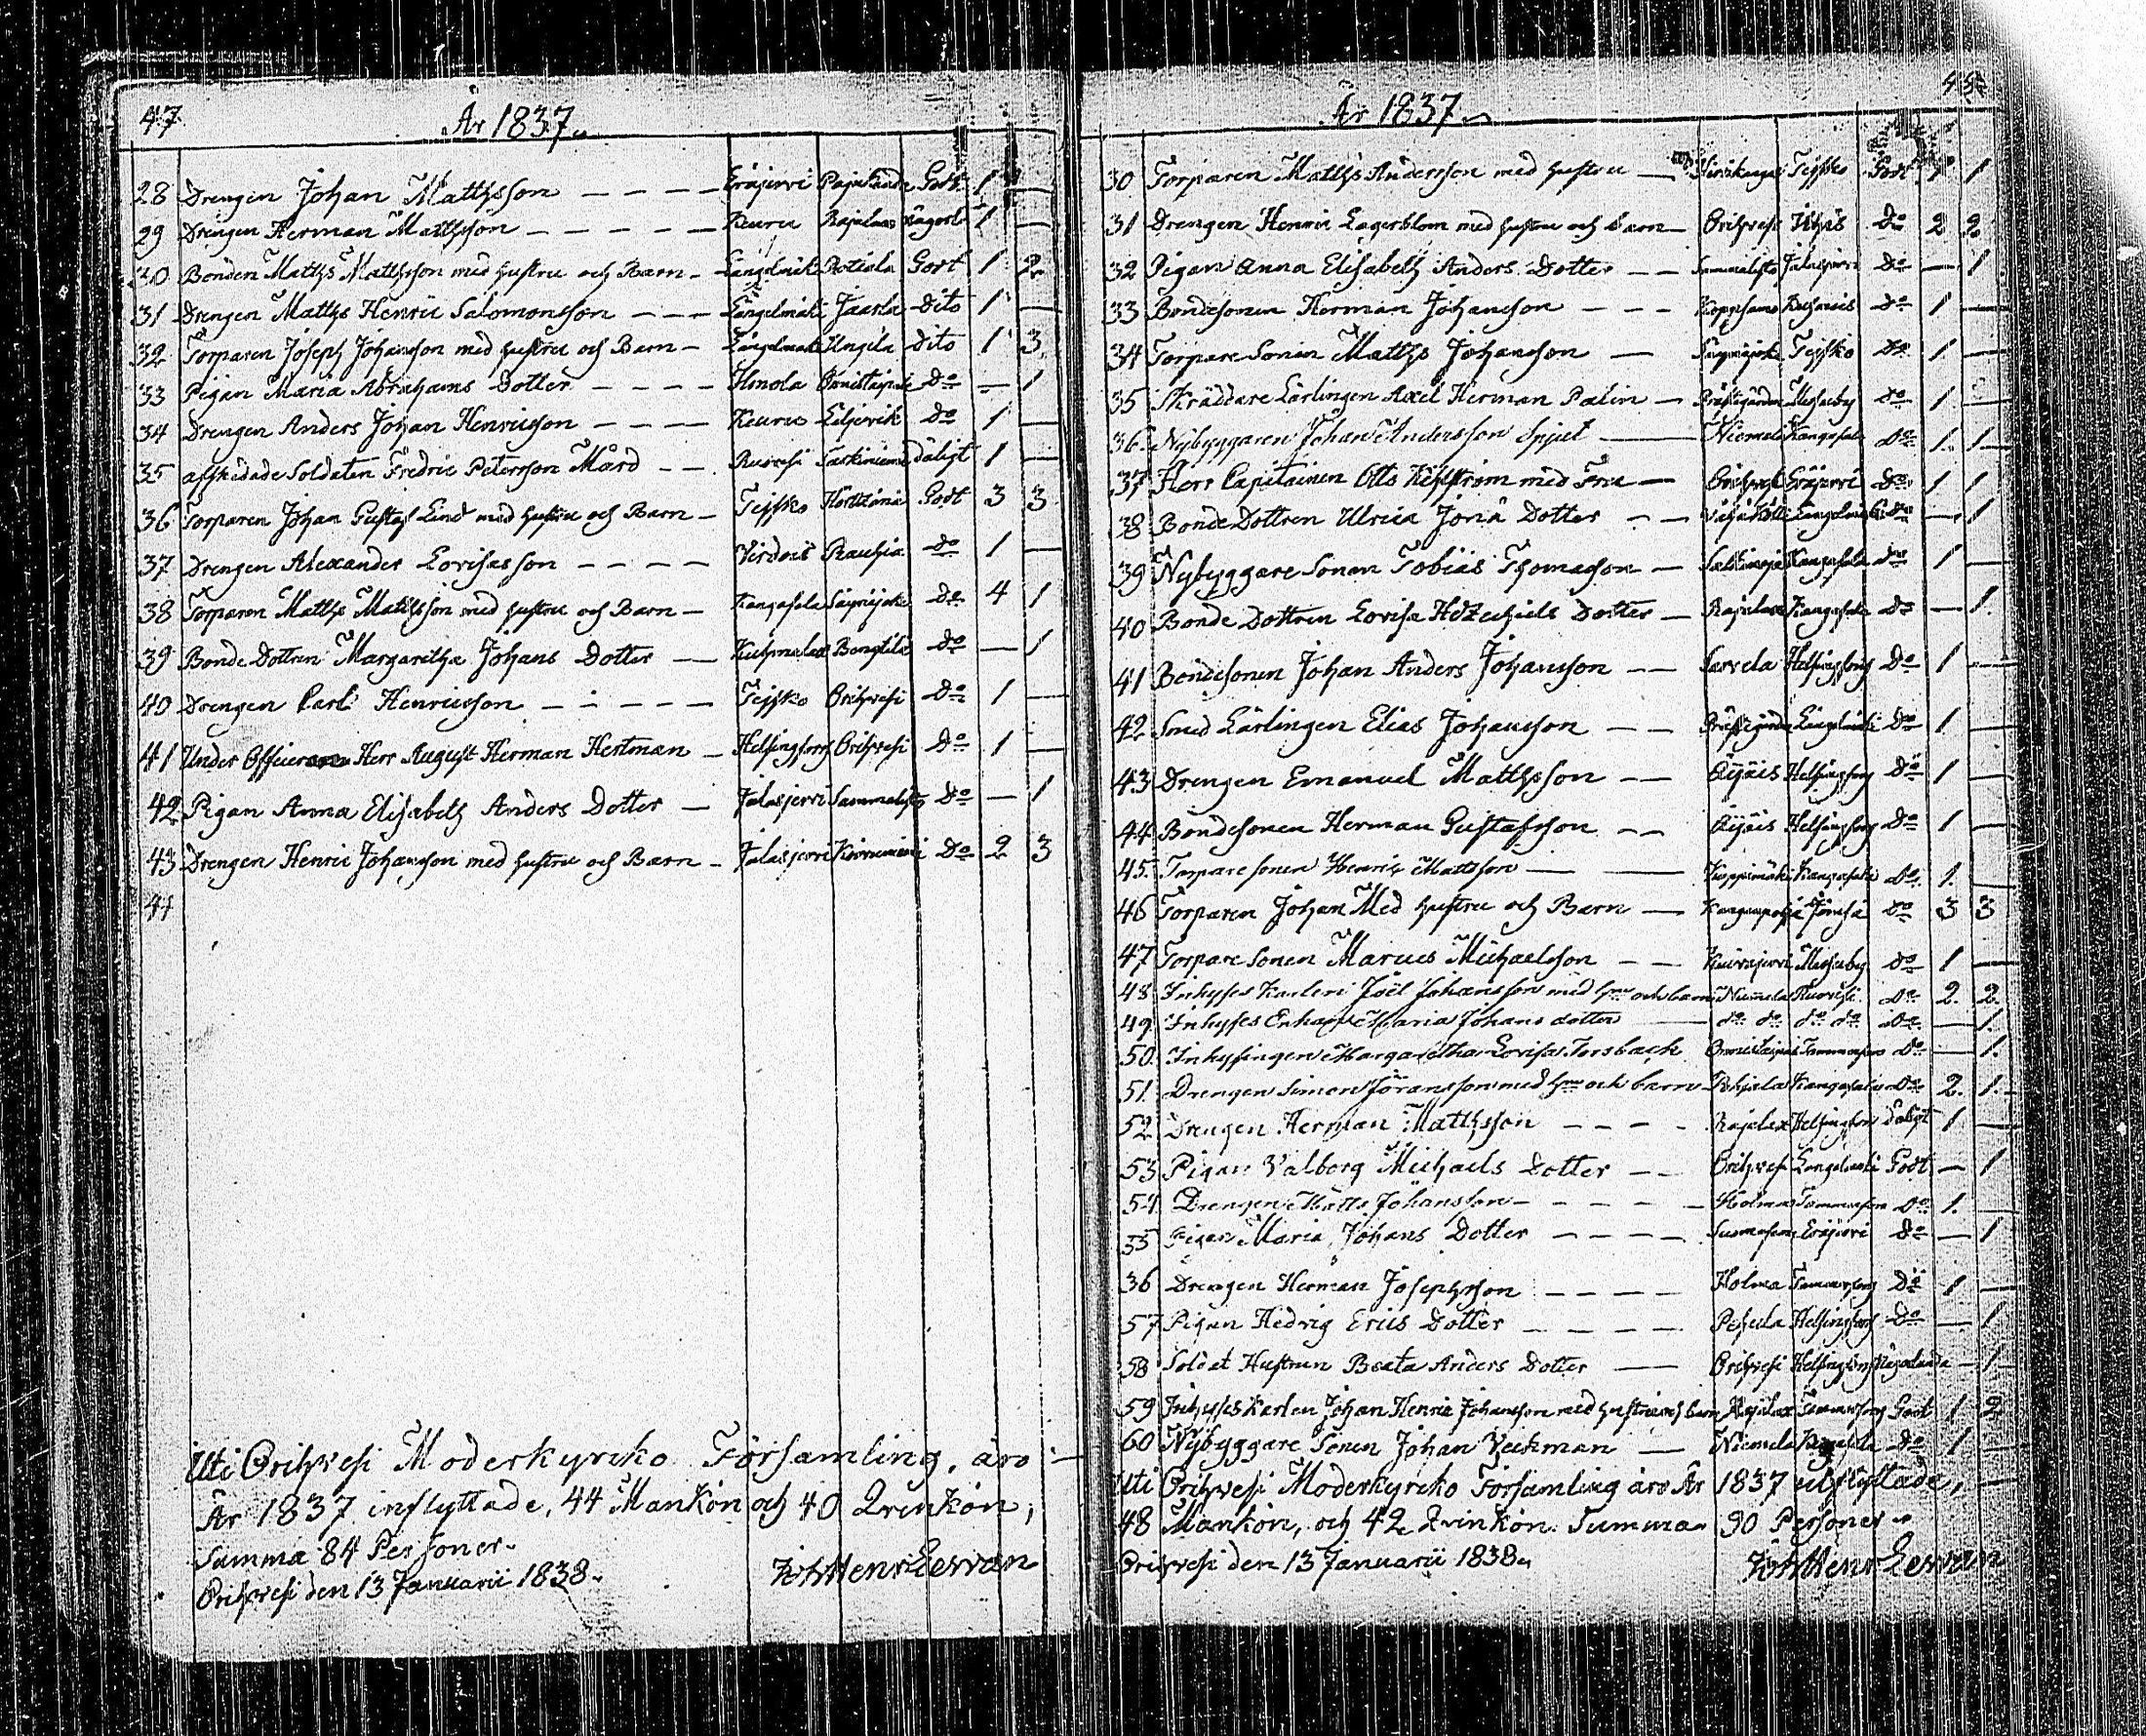 47
År 1837.
28 Drengen Johan Mattsson — — — — Eräjervi Pajulaude Godt 1 —
29 Drengen Herman Mattsson — — — — — Keuru Rajalaax 1 —
30 Bonden Matths Matthsson med hustru och Barn — Längelmäki Godt 1 2
31 Drengen Matths Henric Salomonsson — — — Längelmäki Jaarla Dito 1 —
32 Torparen Joseph Johansson med hustru och Barn — Längelmäki Ungila Dito 1 3
33 Pigan Maria Abrahams Dotter — — — — Onnistaipale Do — 1
34 Drengen Anders Johan Henricsson — — — — Keuru Eiljervik Do 1 —
35 afskedade Soldaten Fredric Petersson Mård — — Ruovesi Dåligt 1 —
36 Torparen Johan Gustaf Lind med hustru och Barn — Teisko Godt 3 3
37 Drengen Alexander Lovisasson — — — — Virdois Rauhia do 1 —
38 Torparen Matths Mattsson med hustru och Barn — Kangasala Säynäjoki Do 4 1
39 Bonde Dottren Margaretha Johans Dotter — Kuhmalax Bengtilä do — 1
40 Drengen Carl Henricsson — — — — — Teisko Orihvesi Do 1 —
41 Under Officieraren Herr August Herman Hertman — Helsingfors Orihvesi Do 1 —
42 Pigan Anna Elisabeth Anders Dotter — Jalasjervi Sammalisto Do — 1
43 Drengen Henric Johansson med hustru och Barn — Jalasjervi Do 2 3
44
Uti Orihvesi Moderkyrcko Församling, äro
År 1837 inflyttade, 44 Mankön och 40 Qvinkön;
Summa 84 Personer.
Orihvesi den 13 Januarii 1838.
Joh Henr Lervan
År 1837.
30 Torparen Matths Andersson med hustru — Teisko Godt 1 1
31 Drengen Henric Lagerblom med hustru och Barn — Orihvesi Do 2 2
32 Pigan Anna Elisabeth Anders Dotter — — Sammalisto Jalasjervi Do — 1
33 Bondesonen Herman Johansson — — — Do 1 —
34 Torpare Sonen Matths Johansson — Säynäjoki Teisko Do 1 —
35 Skräddare Lärlingen Axel Herman Palin — Prästegården Messuby do 1 —
36. Nybyggaren Johan Andersson Spjut — Niemelä Kangasala do 1. 1
37 Herr Capitainen Otto med Fru — Orihvesi Eräjervi do 1 1
38 Bonde Dottren Ulrica Jona Dotter — — Längelmäki do — 1
39 Nybyggare Sonen Tobias Thomasson — Kangasala do 1 —
40 Bonde Dottren Lovisa Hezechiels Dotter — Rajalax Kangasala do — 1
41 Bondesonen Johan Anders Johansson — — Sarvela Helsingfors Do 1 —
42 Smed Lärlingen Elias Johansson — — Prästegården Längelmäki Do 1 —
43 Drengen Emanuel Matthsson — — Äijäis Helsingfors Do 1 —
44 Bondesonen Herman Gustafsson — — Äijäis Helsingfors Do 1 —
45. Torpare sonen Henric Mattsson — — Kangasala do. 1. —
46 Torparen Johan Med hustru och Barn — Jämsä do 3 3
47 Torpare Sonen Marcus Michaelsson — — Messuby do 1 —
48. Inhyses Karlen Joël Johansson med hru och barn Niemelä Ruovesi do 2. 2.
49. Inhyses Enkan Maria Johans dotter — do do do do do — 1.
50. Inhysingen Margaretha Lovisa Forsback Onnistaipale Tammerfors do — 1.
51. Drengen Simon Göransson med hru och barn Pohjala Kangasala do 2. 1.
52 Drengen Herman Matthsson — — — — Rajalax Helsingfors Dåligt 1 —
53 Pigan Valborg Michaels Dotter — — Orihvesi Längelmäki Godt — 1
54. Drengen Matts Johansson — — — — — Holma Tammerfors do 1. —
55 Pigan Maria Johans Dotter — — — — Eräjervi do — 1
36 Drengen Herman Josephsson — — — — Holma Tammerfors Do 1 —
57 Pigan Hedvig Erics Dotter — — — — Helsingfors Do — 1
58 Soldat Hustrun Beata Anders Dotter — Orihvesi Helsingfors — 1
59 Inhyses Karlen Johan Henric Johansson med hustru och barn Rajalax Tammerfors Godt 1 2
60 Nybyggare Sonen Johan — Niemelä Kangasala do 1 —
Uti Orihvesi Moderkyrcko Församling äro År 1837 utflyttade,
48 Mankön, och 42 Qvinkön. Summa 90 Personer.
Orihvesi den 13 Januarii 1838.
Joh Henr Lervan